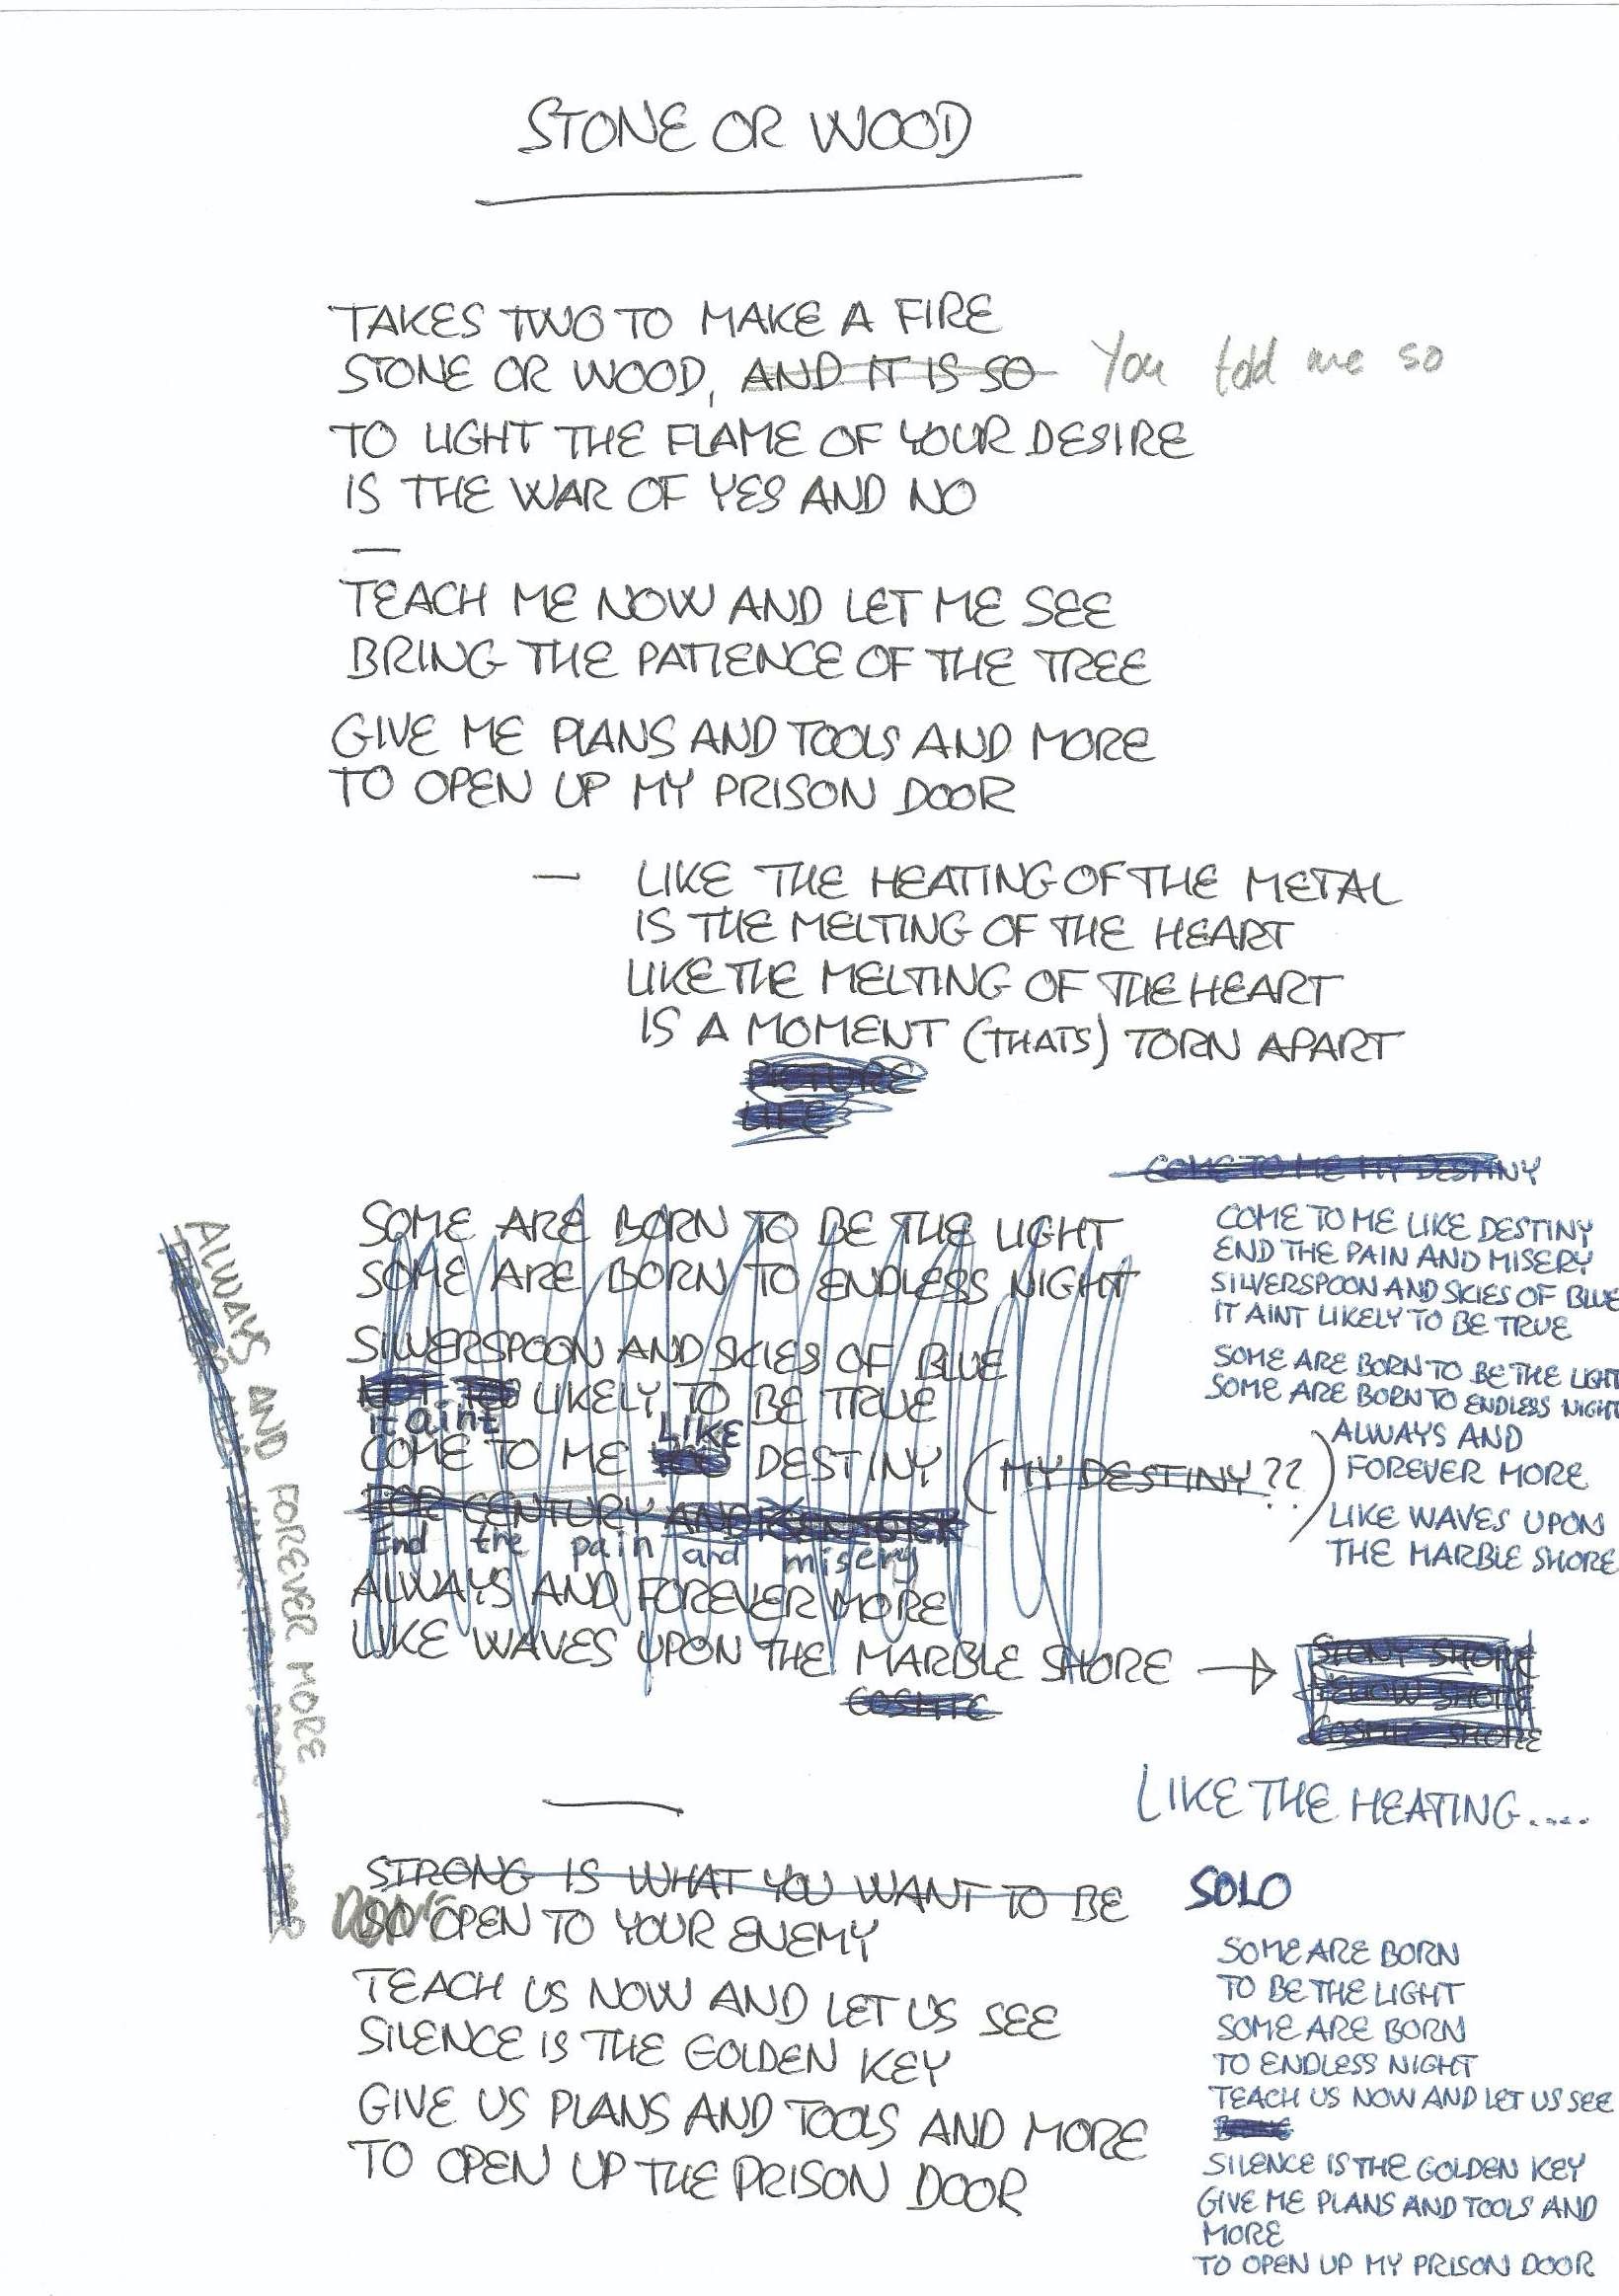 STONE OR WOOD
TAKES TWO TO MAKE A FIRE
STONE OR WOOD, AND IT IS SO You told me so
TO LIGHT THE FLAME OF YOUR DESIRE
IS THE WAR OF YES AND NO
—
TEACH ME NOW AND LET ME SEE
BRING THE PATIENCE OF THE TREE
GIVE ME PLANS AND TOOLS AND MORE
TO OPEN UP MY PRISON DOOR
— LIKE THE HEATING OF THE METAL
IS THE MELTING OF THE HEART
LIKE THE MELTING OF THE HEART
IS A MOMENT (THATS) TORN APART
PICTURE
LIFE
SOME ARE BORN TO BE THE LIGHT
SOME ARE BORN TO ENDLESS NIGHT
SILVERSPOON AND SKIES OF BLUE
NOT TOO LIKELY TO BE TRUE
it aint
LIKE
COME TO ME DESTINY (MY DESTINY??)
FOR CENTURY AND
End the pain and misery
ALWAYS AND FOREVER MORE
LIKE WAVES UPON THE MARBLE SHORE →
COSMIC
STONY SHORE
YELLOW SHORE
COSMIC SHORE
ALWAYS AND FOREVER MORE
COME TO ME MY DESTINY
COME TO ME LIKE DESTINY
END THE PAIN AND MISERY
SILVERSPOON AND SKIES OF BLUE
IT AINT LIKELY TO BE TRUE
SOME ARE BORN TO BE THE LIGHT
SOME ARE BORN TO ENDLESS NIGHT
ALWAYS AND
FOREVER MORE
LIKE WAVES UPON
THE MARBLE SHORE
LIKE THE HEATING....
STRONG IS WHAT YOU WANT TO BE
SO OPEN TO YOUR ENEMY
TEACH US NOW AND LET US SEE
SILENCE IS THE GOLDEN KEY
GIVE US PLANS AND TOOLS AND MORE
TO OPEN UP THE PRISON DOOR
SOLO
SOME ARE BORN
TO BE THE LIGHT
SOME ARE BORN
TO ENDLESS NIGHT
TEACH US NOW AND LET US SEE
SILENCE IS THE GOLDEN KEY
GIVE ME PLANS AND TOOLS AND
MORE
TO OPEN UP MY PRISON DOOR